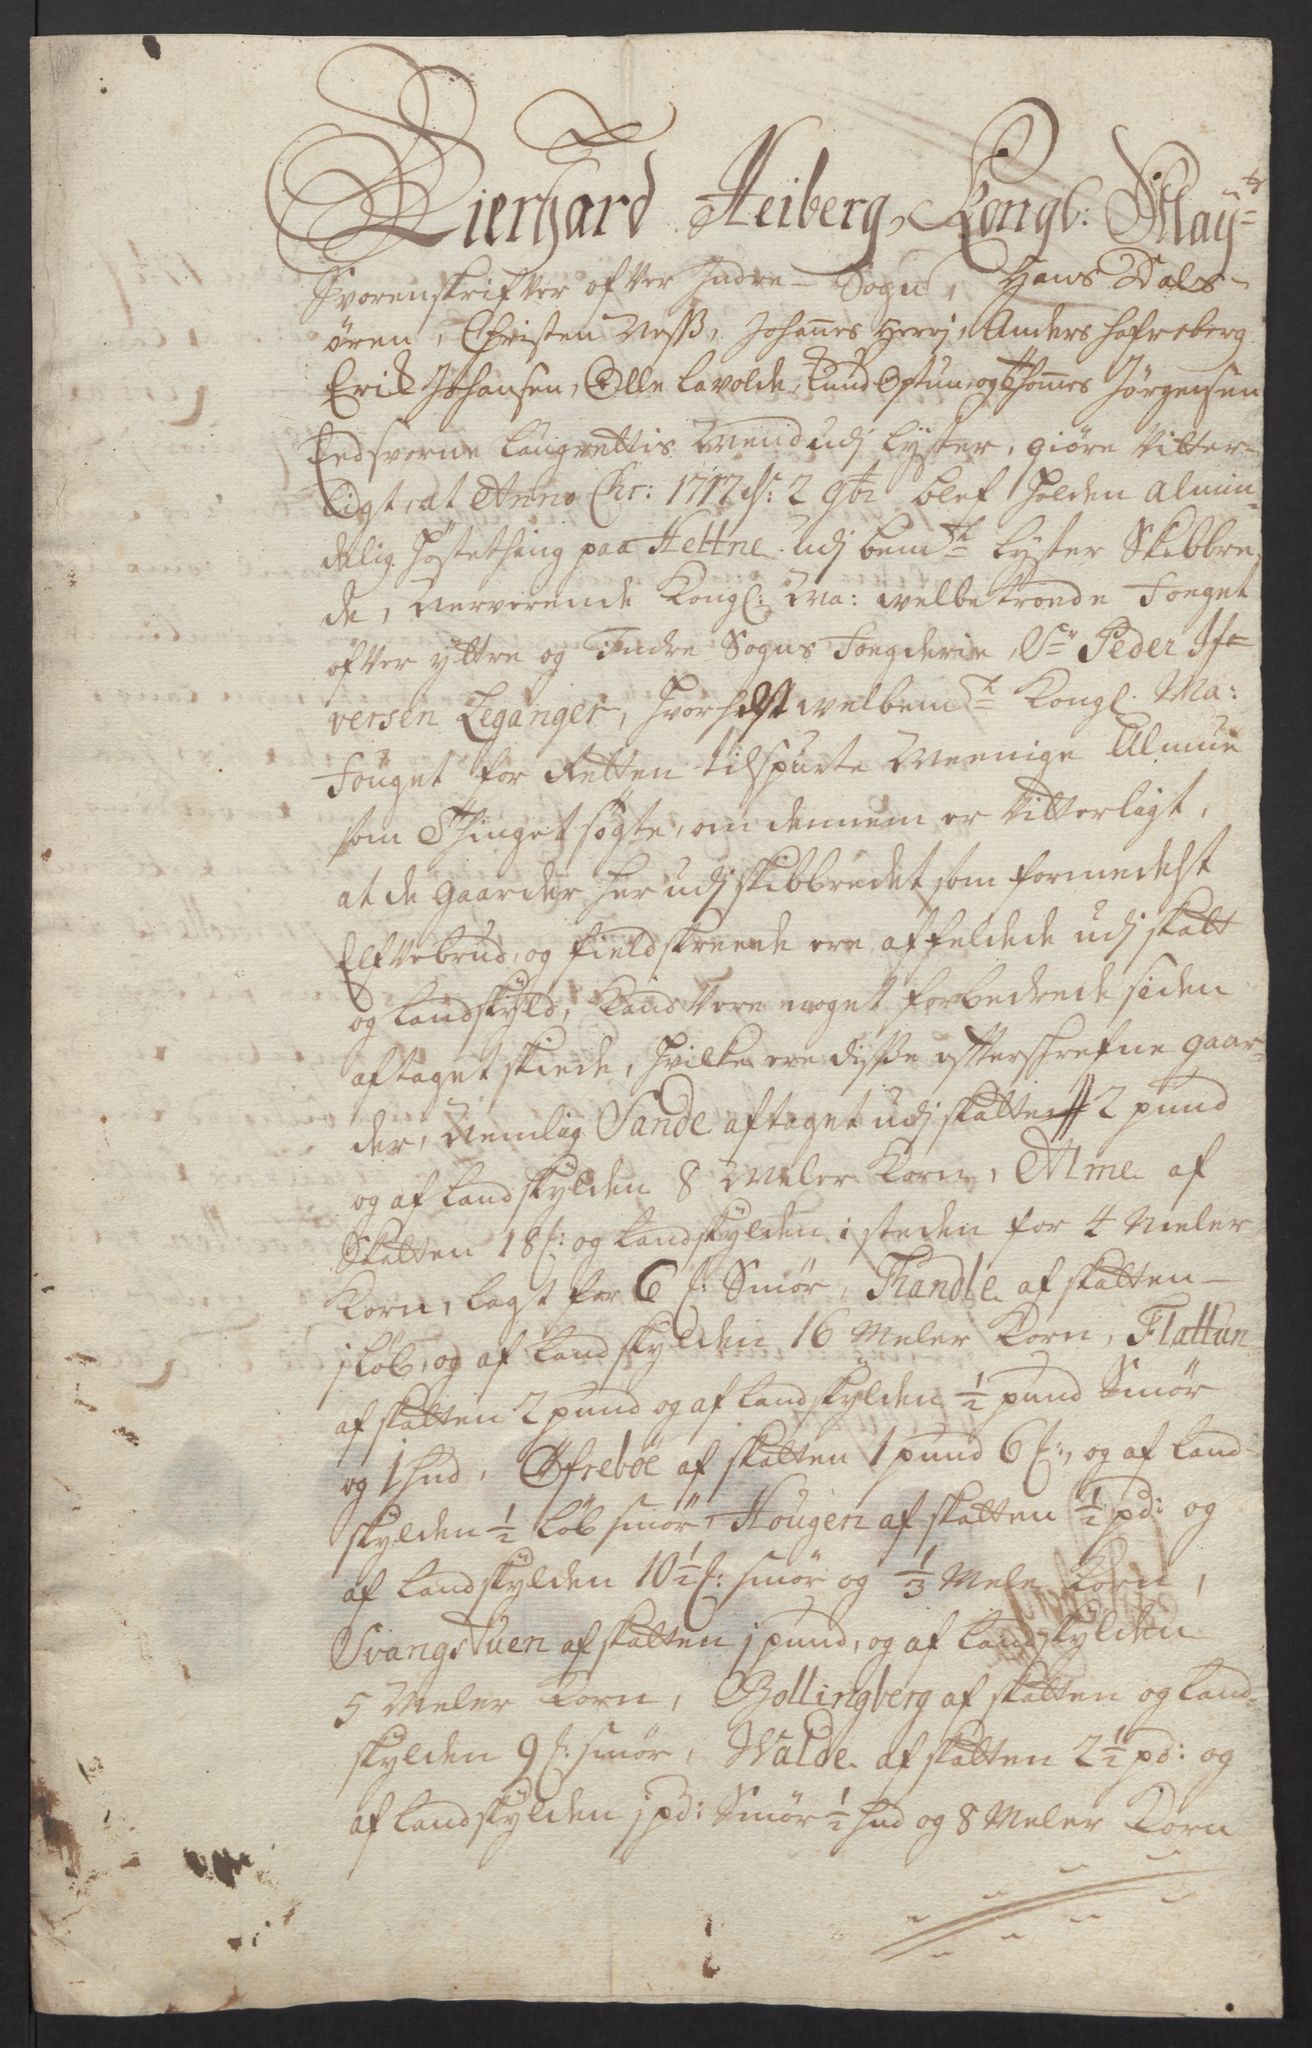 Gierhard Heiberg, Kongl: May=ts
Svorenskrifver ofver Indre-Sogn, Hans Dals-
ören, Christen Næss, Johannes Herrj, Anders Hafreberg
Erik Johansen, Olle Lavolde, Knud Optun, og Thomes Jörgensen
Eedsvorne Laugrettis Mend udj Lyster, giöre Vitter-
ligt, at Anno Chr: 1717 d: 2 9br blef holden almin-
delig Höstething paa Hettne udj bemte Lyster Skibbre-
de, Nerverende Kongl: Ma: welbetroede Foeget
ofver yttre og Indre Sogns Foegderie, Sr Peder If=
versen Leganger, hvorhelst welbemte Kongl. Ma:
Fouget for Retten tilspurte Meenige Almue
som Thinget sögte, om dennem er Vitterligt,
at de gaarder her udj Skibbredet som formedelst
Elfvebrud, og fieldskreede ere affeldede udj skatt
og Landskyld, Kand Vere noget forbedrede siden
aftaget skiede, hvilke ere disse effterschrefne gaar-
der, Nemlig Sande aftaget udj skatten 2 pund
og af Landskylden 8 Meler Korn, Alme af
Skatten 18 f: og Landskylden i steden for 4 Meler
Korn, lagt for 6 f: Smör, Thandle af skatten-
j Löb, og af Landskylden 16 Meler Korn, Flattun
af skatten 2 pund og af Landskylden ½ pund Smör
og 1 hud, Öfreböe af skatten 1 pund 6 f:, og af Land-
skylden ½ Löb smör, Hougen af skatten ½ pd: og
af Landskylden 10½ f: smör og ⅓ Mele Korn,
Svangstuen af skatten j pund, og af Landskylden
5 Meler Korn, Bollingberg af skatten og Land-
skylden 9 f: smör, Walde af skatten 2½ pd: og
af Landskylden j pd: Smör ½ hud og 8 Meler Korn